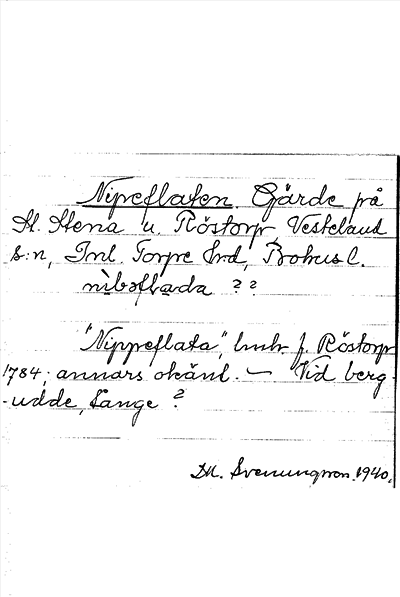 Nipreflaten. Gärde på
St. Stena u. Röstorp, Vesteland
s:n, Inl. Torpe hrd, Bohusl.
nibəflada ??
"Nippeflata", lmh. f. Röstorp
1784; annars okänt. — Vid berg-
-udde, Tange?
M. Svenungsson. 1940.